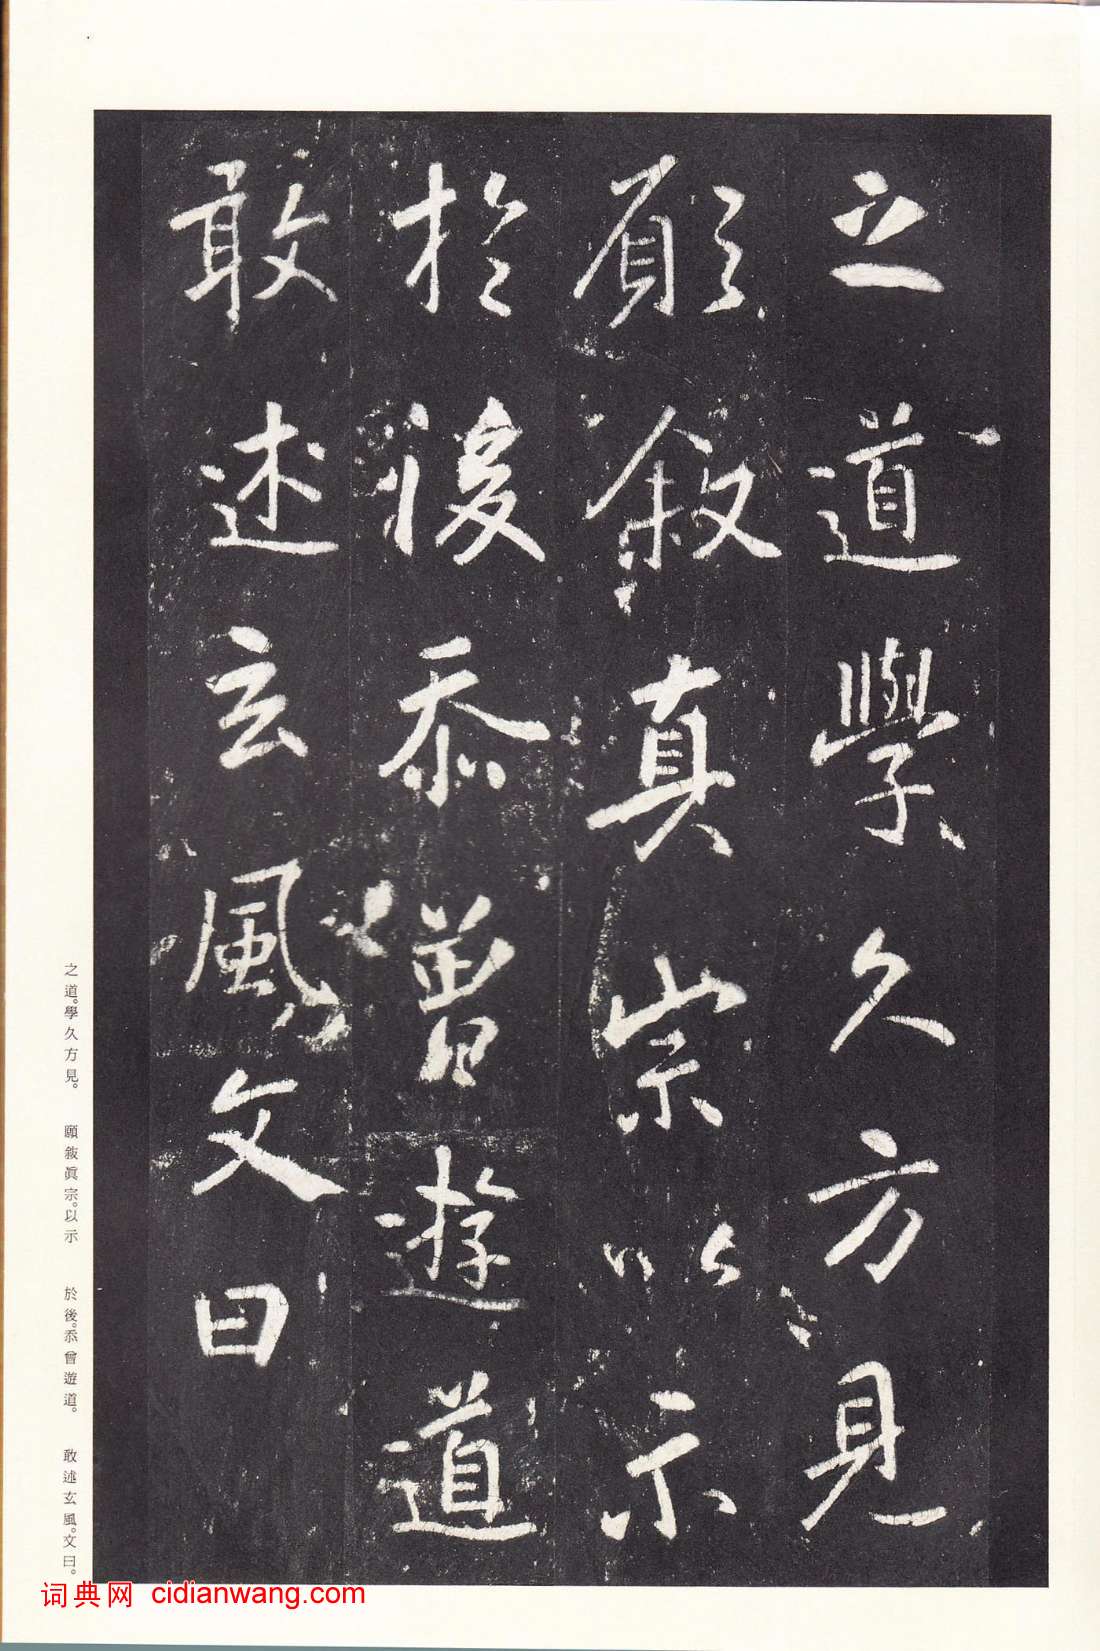 之道學久方見
願敘真宗以示
於後忝曾遊道
敢述玄風文曰
之道。學久方見。 願敘眞宗。以示 於後。忝曾遊道。 敢述玄風。文曰。
词典网 cidianwang.com